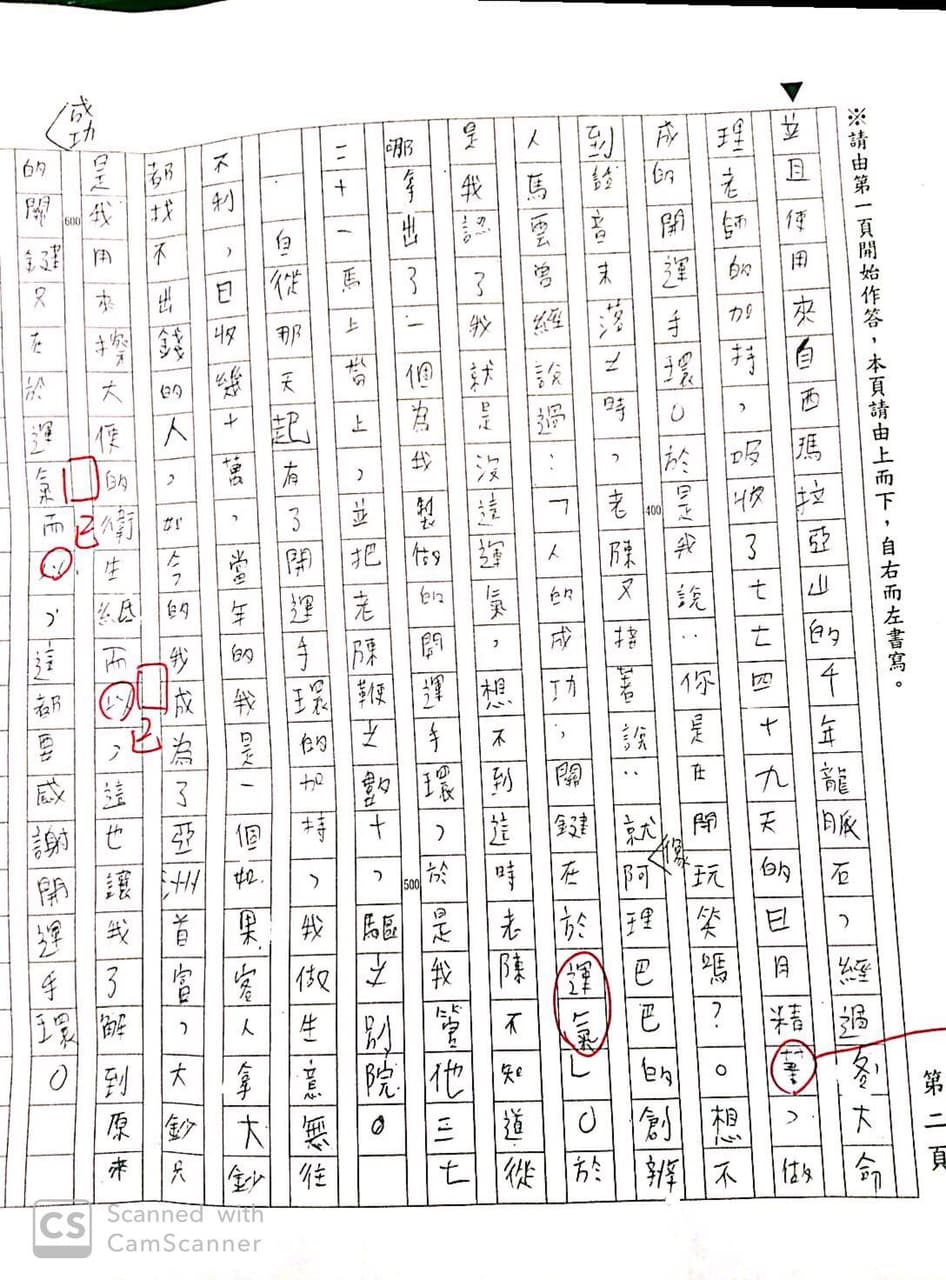 ※請由第一頁開始作答，本頁請由上而下，自右而左書寫。
第二頁
並且使用來自西瑪拉亞山的千年龍脈石，經過忩大侖
理老師的加持，吸收了七七四十九天的日月精華，做
成的開運手環。於是我說：你是在開玩笑嗎？。想不
到話音未落之時，老陳又接著說：就像阿里巴巴的創辦
人馬雲曾經說過：「人的成功，關鍵在於運氣」。於
是我認了我就是沒這運氣，想不到這時老陳不知道從
哪拿出了一個為我製做的開運手環，於是我管他三七
二十一馬上替上，並把老陳鞭之數十，驅之別院。
自從那天起有了開運手環的加持，我做生意無往
不利，日收幾十萬，當年的我是一個如果客人拿大鈔
都找不出錢的人，如今的我成為了亞洲首富，大鈔只
是我用來擦大便的衛生紙而以，這也讓我了解到原來
成功
的關鍵只在於運氣而以，這都要感謝開運手環。
己
己
400
500
600
CS Scanned with
CamScanner